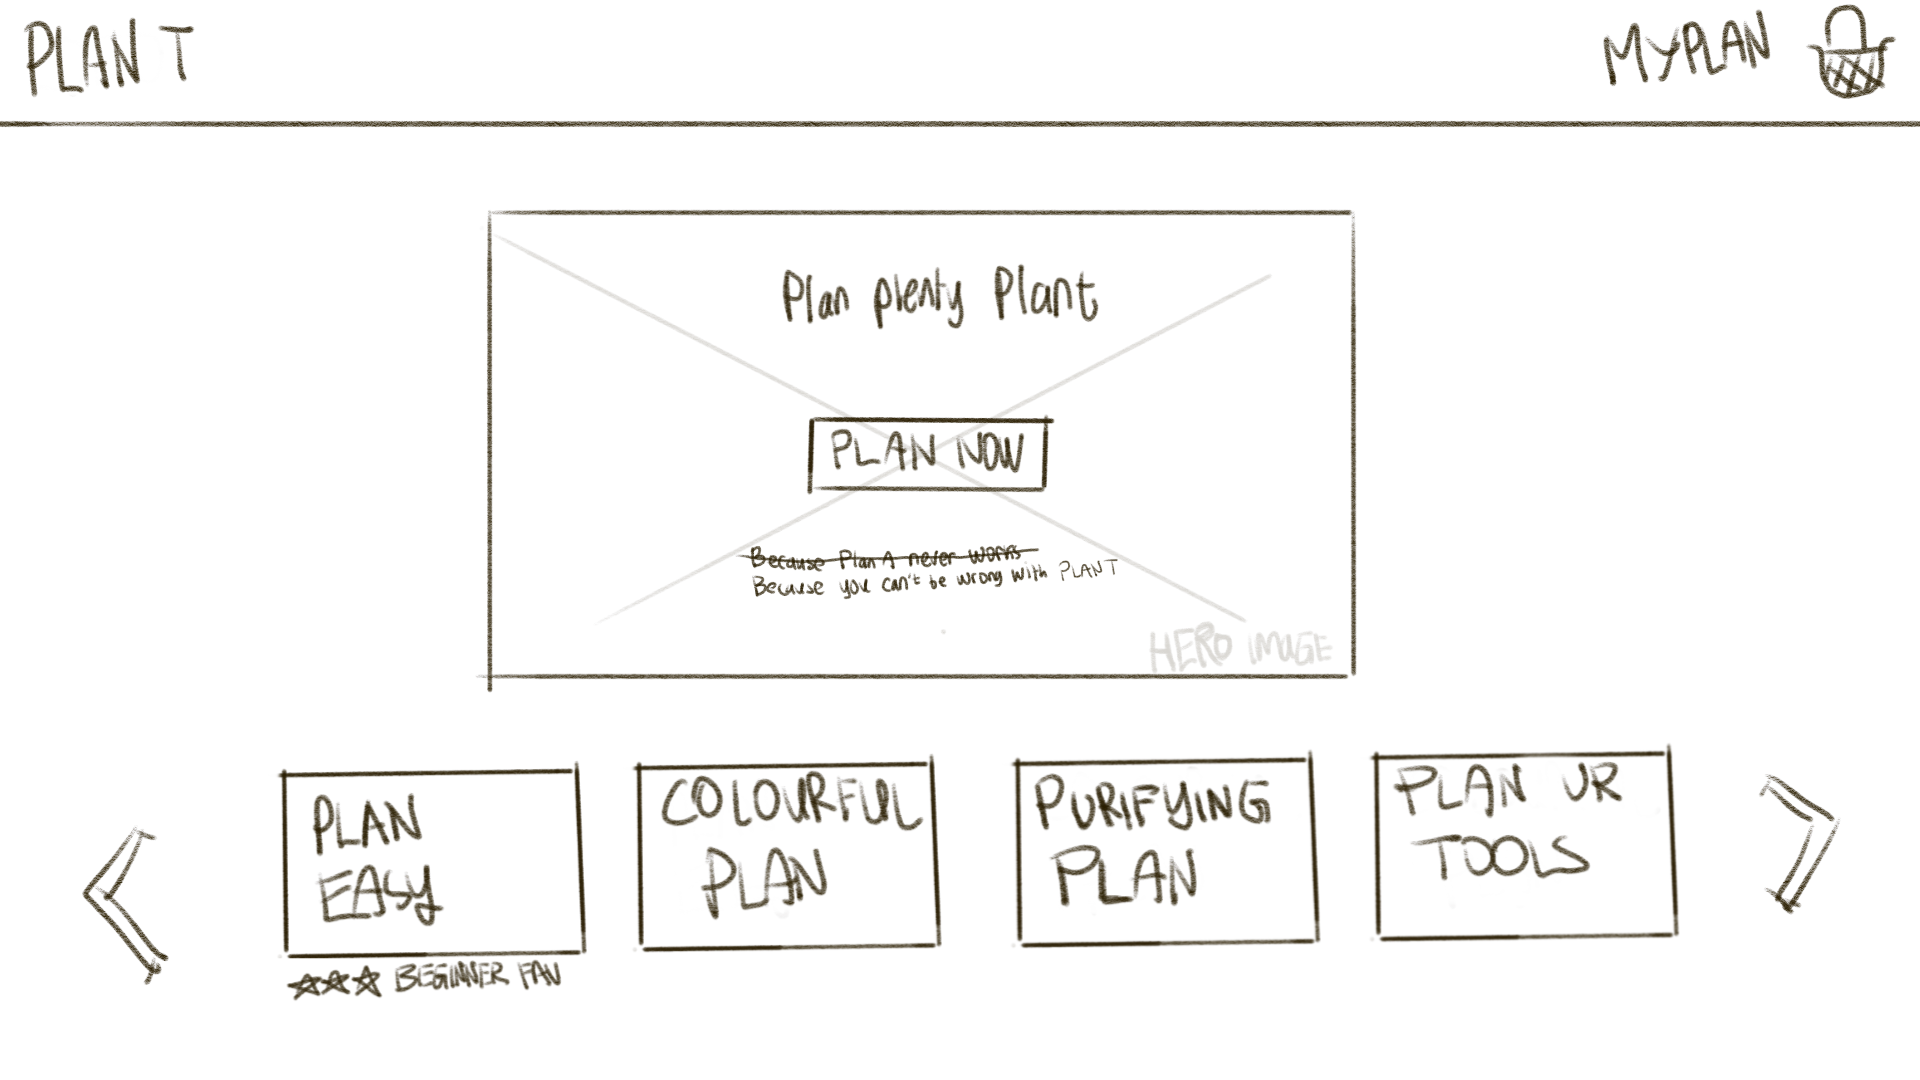 PLAN T
MYPLAN
Plan plenty Plant
PLAN NOW
Because Plan A never works
Because you can't be wrong with PLANT
HERO IMAGE
PLAN
EASY
COLOURFUL
PLAN
PURIFYING
PLAN
PLAN UR
TOOLS
BEGINNER FAV